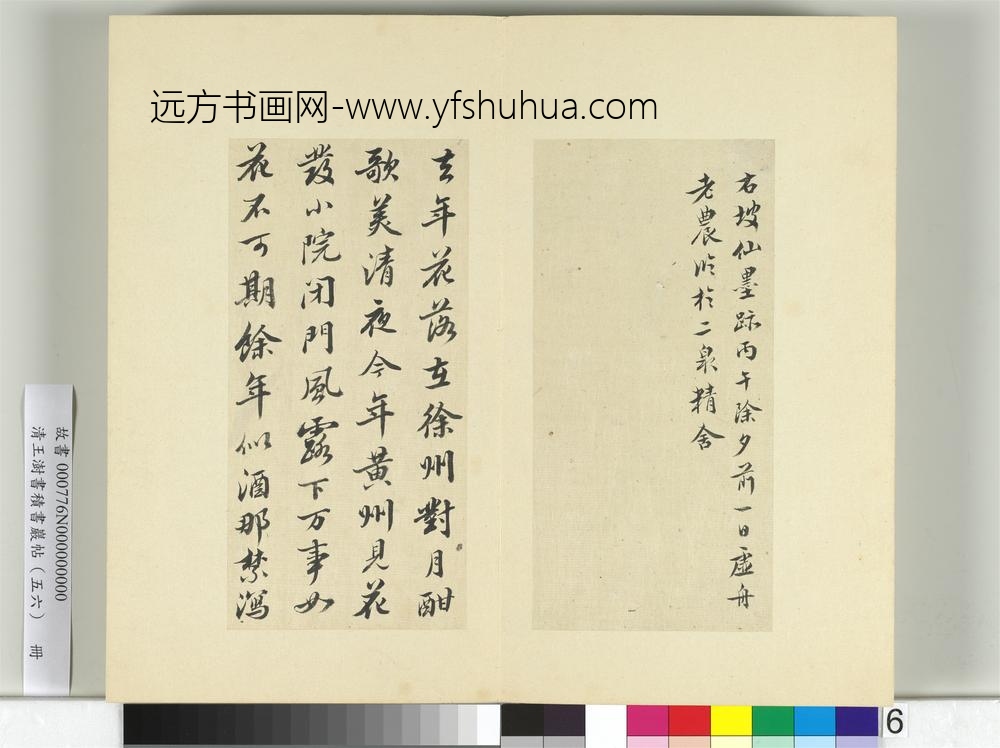 远方书画网-www.yfshuhua.com
右坡仙墨跡丙午除夕前一日虛舟
老農臨於二泉精舍
去年花落在徐州對月酣
歌美清夜今年黃州見花
發小院閉門風露下万事如
花不可期餘年似酒那禁瀉
故書 000776N000000000
清王澍書積書巖帖（五六） 冊
6